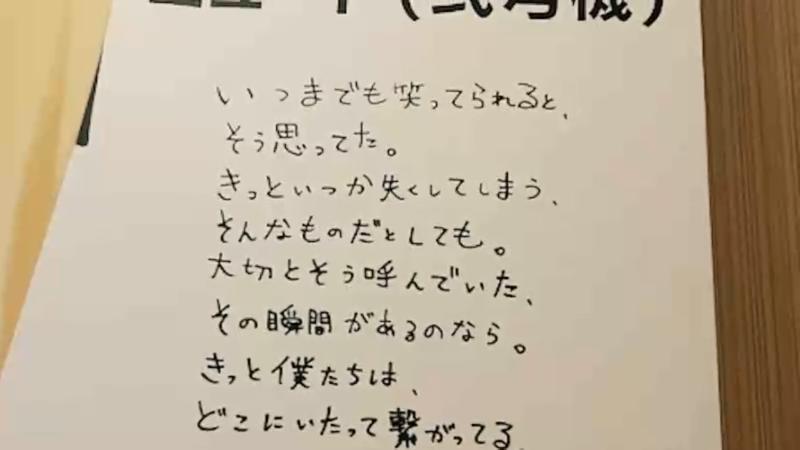 (弐号機)
いつまでも笑ってられると、
そう思ってた。
きっといつか失くしてしまう、
そんなものだとしても。
大切とそう呼んでいた、
その瞬間があるのなら。
きっと僕たちは、
どこにいたって繋がってる